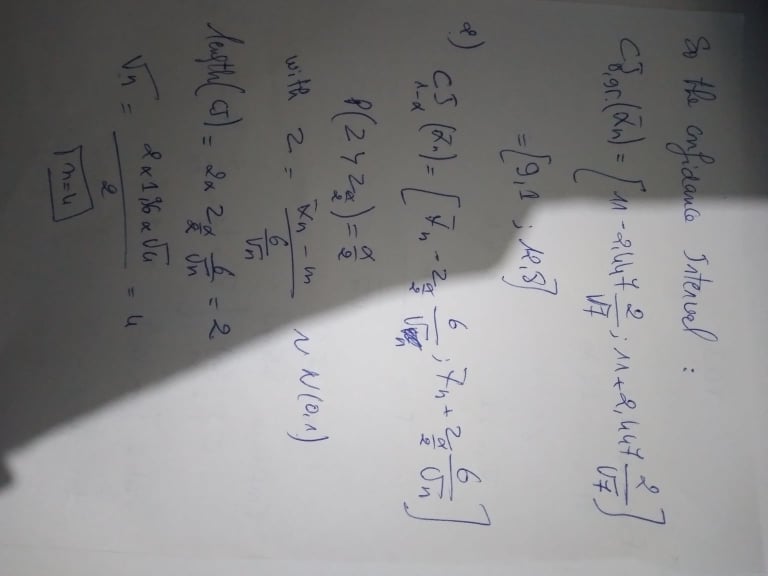 So the confidance Interval :
CI₀,₉₅(X̄n) = [11 - 2,447 2/√7 ; 11 + 2,447 2/√7]
= [9,1 ; 12,8]
2) CI₁₋α(X̄n) = [X̄n - Zα/2 σ/√n ; X̄n + Zα/2 σ/√n]
P(Z > Zα/2) = α/2
with Z = (X̄n - m)/(σ/√n) ~ N(0,1)
length(CI) = 2 x Zα/2 σ/√n = 2
√n = (2 x 1,96 x √4)/2 = 4
n=4